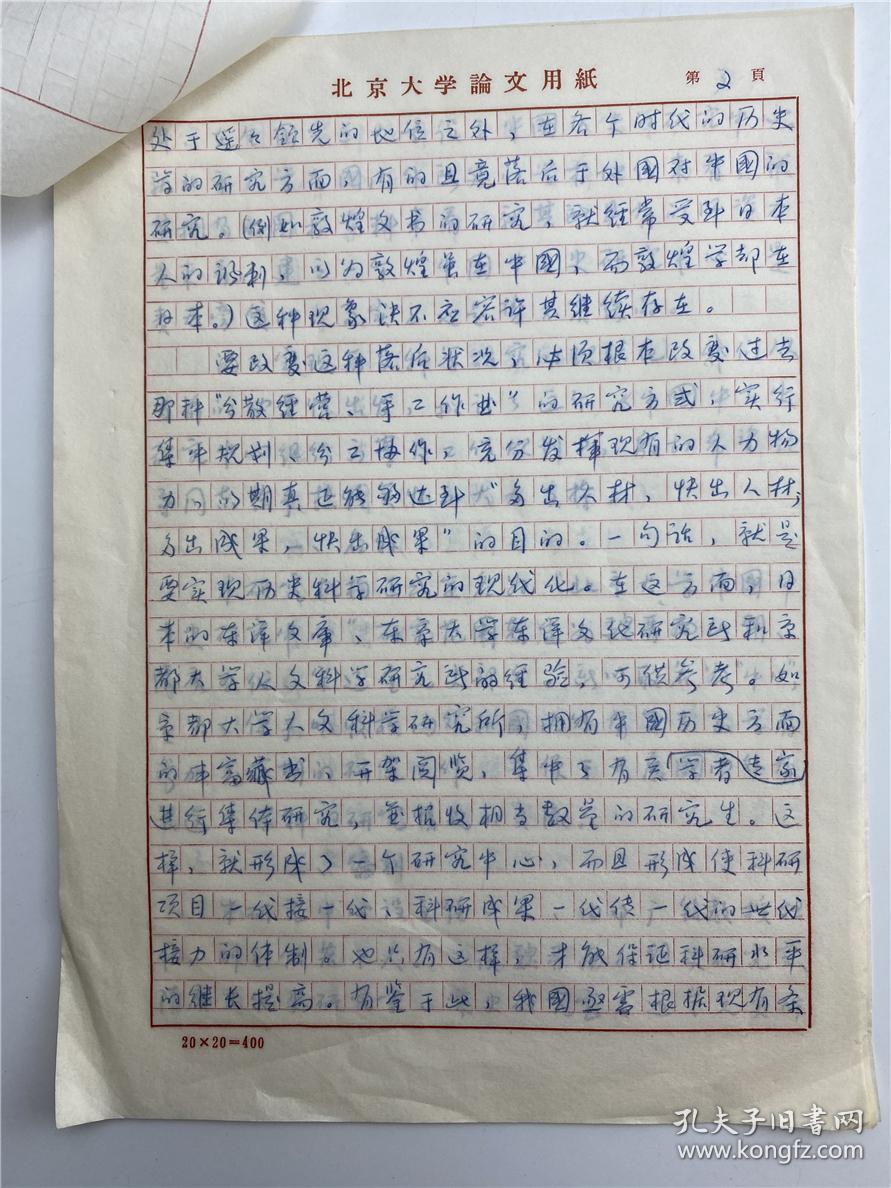 北京大学論文用紙
第2頁
处于遥々领先的地位之外，在各个时代的历史
的研究方面，有的且竟落后于外國对中國的
研究。(例如敦煌文书的研究，就經常受到日本
人的讽刺，以为敦煌虽在中國，而敦煌学却在
日本。)这种现象决不应容许其继续存在。
要改变这种落后状况，必须根本改变过去
那种“分散經营、手工作业”的研究方式，实行
集中规划、分工协作，充分发挥现有的人力物
力，以期真正能够达到“多出人材，快出人材，
多出成果，快出成果”的目的。一句话，就是
要实现历史科学研究的现代化。在这方面，日
本的东洋文库、东京大学东洋文化研究所和京
都大学人文科学研究所的經验，可供参考。如
京都大学人文科学研究所，拥有中國历史方面
的丰富藏书，开架阅览，集中了有关学者专家
进行集体研究，並招收相当数量的研究生。这
样，就形成了一个研究中心，而且形成使科研
项目一代接一代、科研成果一代传一代的世代
接力的体制。也只有这样，才能保证科研水平
的继长提高。有鉴于此，我國亟需根据现有条
20×20=400
孔夫子旧书网
www.kongfz.com